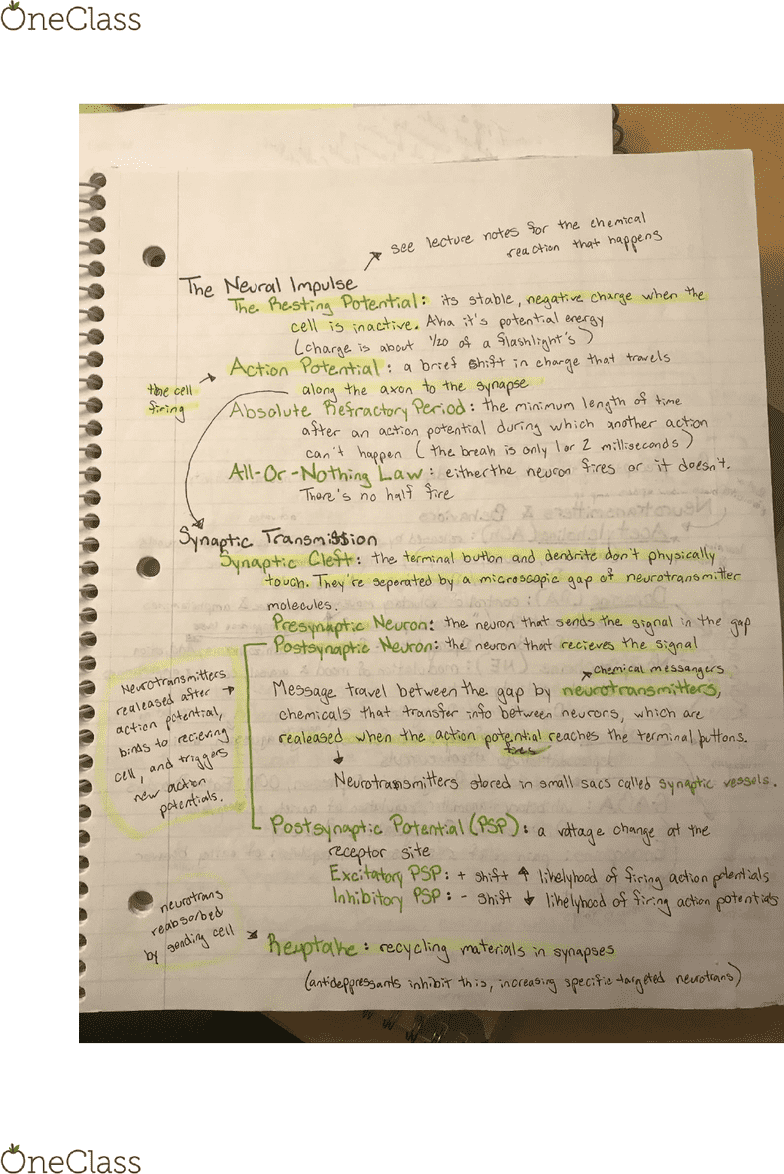 OneClass
see lecture notes for the chemical
reaction that happens
The Neural Impulse
The Resting Potential: its stable, negative charge when the
cell is inactive. Aka it's potential energy
(charge is about 1/20 of a flashlight's)
Action Potential: a brief shift in charge that travels
along the axon to the synapse
the cell
firing
Absolute Refractory Period: the minimum length of time
after an action potential during which another action
can't happen (the break is only 1 or 2 milliseconds)
All-Or-Nothing Law: either the neuron fires or it doesn't.
There's no half fire
Synaptic Transmission
Synaptic Cleft: the terminal button and dendrite don't physically
touch. They're seperated by a microscopic gap of neurotransmitter
molecules.
Presynaptic Neuron: the neuron that sends the signal in the gap
Postsynaptic Neuron: the neuron that recieves the signal
chemical messangers
Message travel between the gap by neurotransmitters,
chemicals that transfer info between neurons, which are
realeased when the action potential reaches the terminal buttons.
Neurotransmitters stored in small sacs called synaptic vessels.
Neurotransmitters
realeased after
action potential,
binds to recieving
cell, and triggers
new action
potentials.
Postsynaptic Potential (PSP): a voltage change at the
receptor site
Excitatory PSP: + shift ↑ likelyhood of firing action potentials
Inhibitory PSP: - shift ↓ likelyhood of firing action potentials
neurotrans
reabsorbed
by sending cell
Reuptake: recycling materials in synapses
(antideppressants inhibit this, increasing specific targeted neurotrans)
OneClass